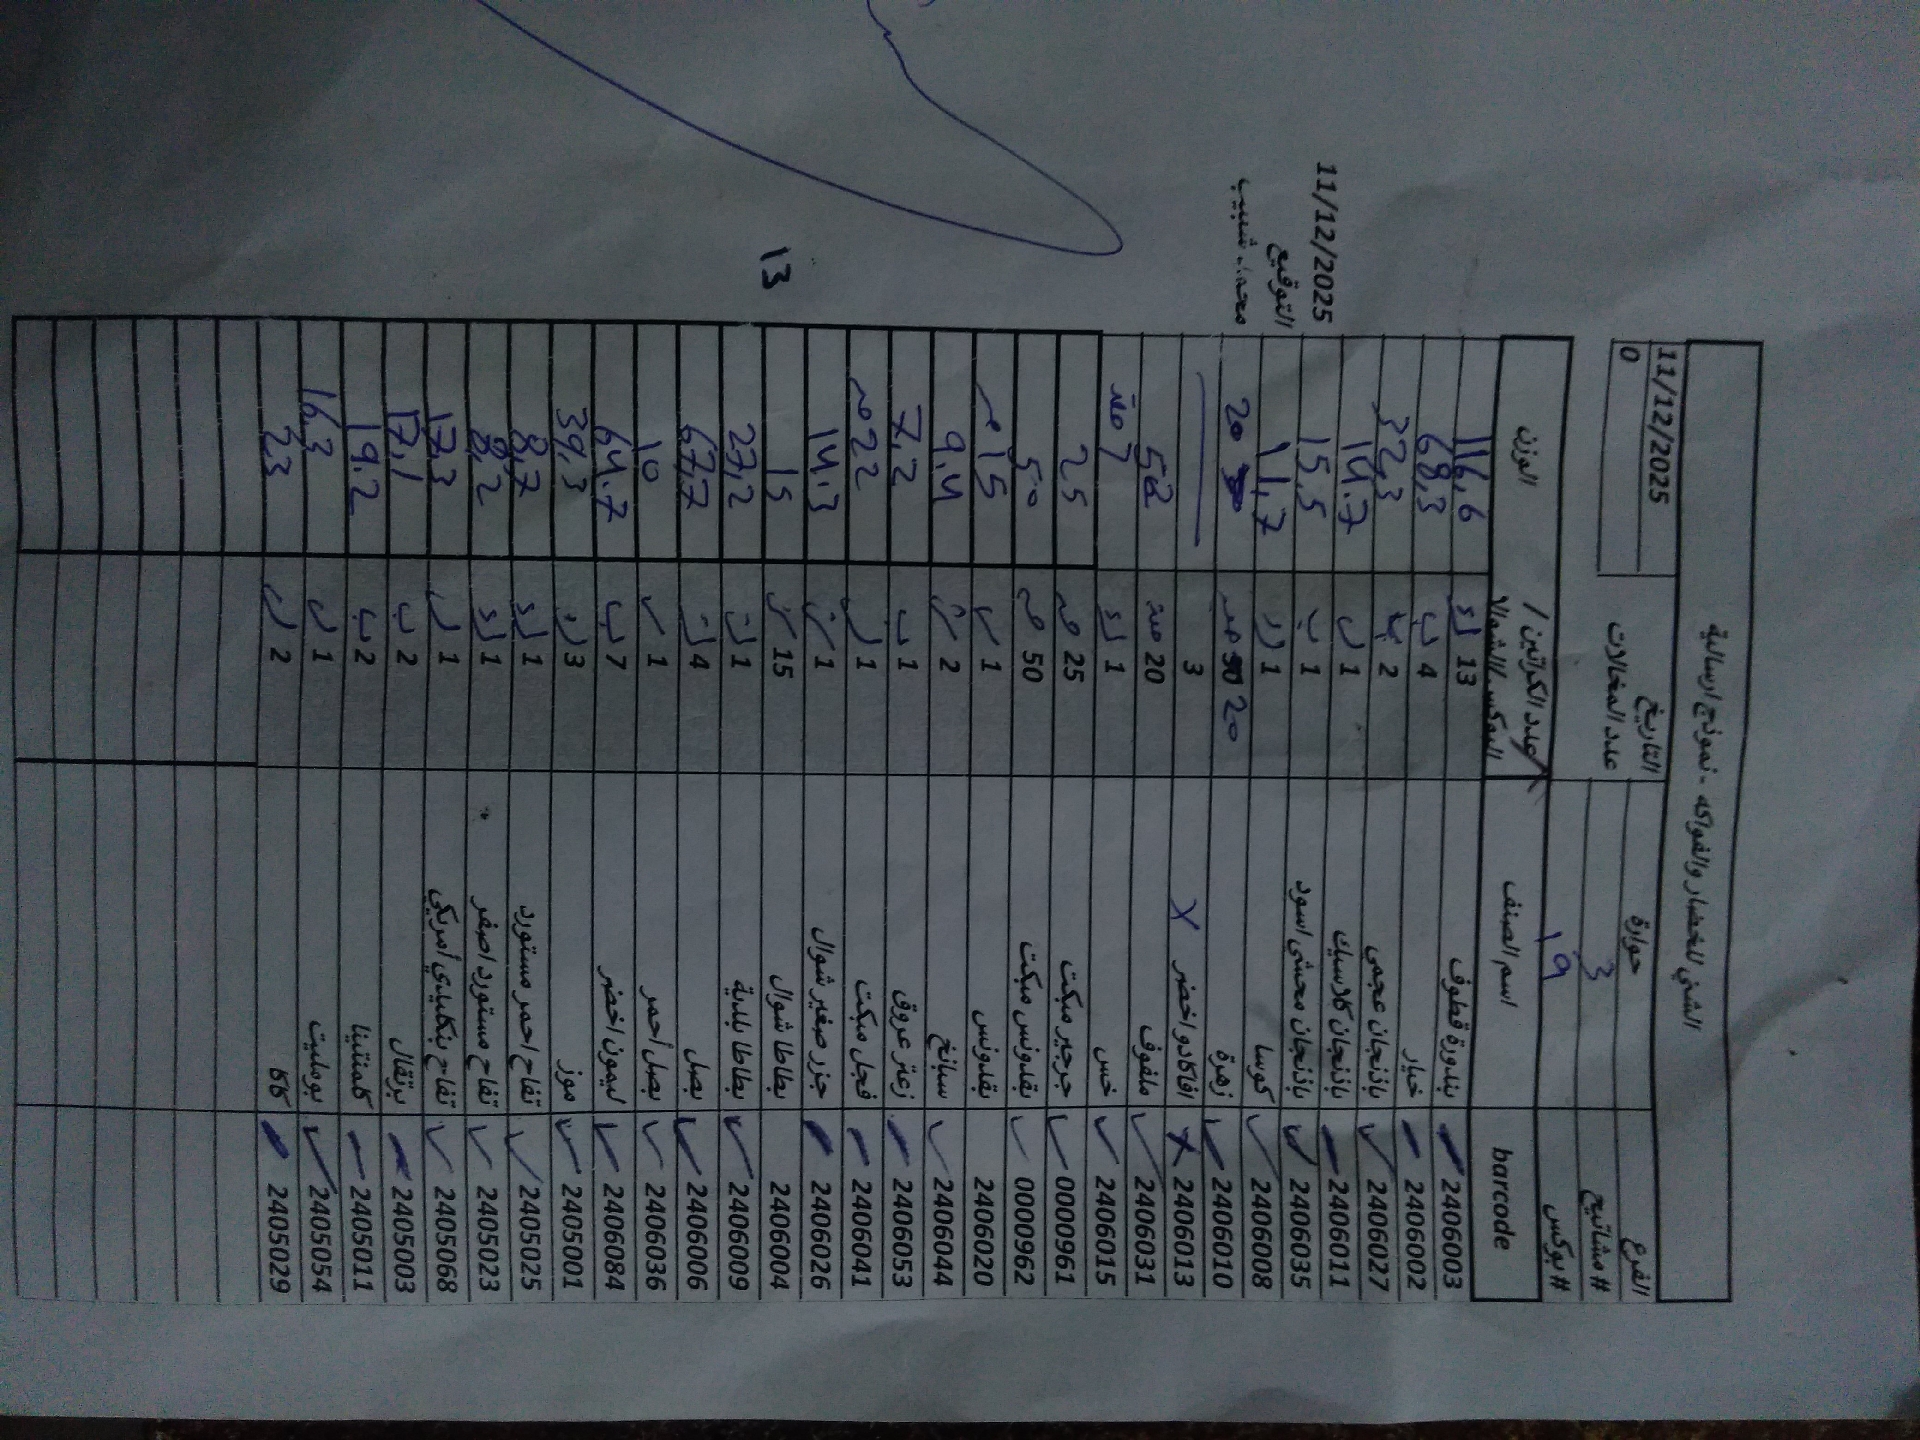 الشني للخضار والفواكه - نموذج ارسالية
الفرع حوارة التاريخ 11/12/2025
# مشاتيح 3 عدد المخالات 0
# بوكس 19
barcode اسم الصنف عدد الكراتين / البوكس/الشوالات الوزن
2406003 بندورة قطوف 13 116,6
2406002 خيار 4 68,3
2406027 باذنجان عجمي 2 32,3
2406011 باذنجان كلاسيك 1 14.7
2406035 باذنجان محشي اسود 1 15,5
2406008 كوسا 1 11,7
2406010 زهرة 20 20
2406013 افاكادو اخضر X 3
2406031 ملفوف 20 52
2406015 خس 1 7
0000961 جرجير مبكت 25 25
0000962 بقدونس مبكت 50 50
2406020 بقدونس 1 15
2406044 سبانخ 2 9.4
2406053 زعتر عروق 1 7,2
2406041 فجل مبكت 1 22
2406026 جزر صغير شوال 1 14.3
2406004 بطاطا شوال 15 15 13
2406009 بطاطا بلدية 1 27,2
2406006 بصل 4 67,7
2406036 بصل أحمر 1 10
2406084 ليمون اخضر 7 64.7
2405001 موز 3 39,3
2405025 تفاح احمر مستورد 1 8,7
2405023 تفاح مستورد اصفر 1 8,2
2405068 تفاح بنكليدي أمريكي 1 17.3
2405003 برتقال 2 17,1
2405011 كلمنتينا 2 19.2
2405054 بومليت 1 16,3
2405029 كاكا 2 23
11/12/2025
التوقيع
محمد شبيب